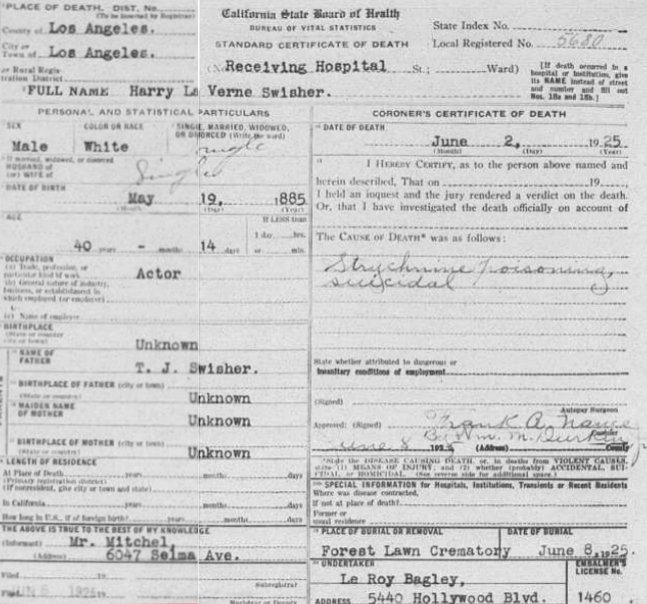 PLACE OF DEATH. DIST. No.
(To be inserted by Registrar)
County of Los Angeles.
City or
Town of Los Angeles.
or Rural Regis-
tration District
California State Board of Health
BUREAU OF VITAL STATISTICS
STANDARD CERTIFICATE OF DEATH
State Index No.
Local Registered No. 5680
(No. Receiving Hospital St.; Ward)
[If death occurred in a
hospital or institution, give
its NAME instead of street
and number and fill out
Nos. 18a and 18b.]
FULL NAME Harry La Verne Swisher.
PERSONAL AND STATISTICAL PARTICULARS
SEX
Male
COLOR OR RACE
White
SINGLE, MARRIED, WIDOWED,
OR DIVORCED (Write the word)
Single
If married, widowed, or divorced
HUSBAND of
(or) WIFE of
Single
DATE OF BIRTH
May 19, 1885
(Month) (Day) (Year)
AGE
40 years - months 14 days
If LESS than
1 day hrs.
or min.
OCCUPATION
(a) Trade, profession, or
particular kind of work
Actor
(b) General nature of industry,
business, or establishment in
which employed (or employer)
(c) Name of employer
BIRTHPLACE
(State or country
city or town)
Unknown
NAME OF
FATHER
T. J. Swisher.
BIRTHPLACE OF FATHER (city or town)
(State or country)
Unknown
MAIDEN NAME
OF MOTHER
Unknown
BIRTHPLACE OF MOTHER (city or town)
(State or country)
Unknown
LENGTH OF RESIDENCE
At Place of Death years months days
(Primary registration district)
(If nonresident, give city or town and state)
In California years months days
How long in U.S., if of foreign birth? years months days
THE ABOVE IS TRUE TO THE BEST OF MY KNOWLEDGE
(Informant) Mr. Mitchel,
(Address) 6047 Selma Ave.
Filed 19
Subregistrar
Filed JUN 5 1925
Registrar or Deputy
CORONER'S CERTIFICATE OF DEATH
DATE OF DEATH
June 2, 1925
(Month) (Day) (Year)
I HEREBY CERTIFY, as to the person above named and
herein described, That on 19,
I held an inquest and the jury rendered a verdict on the death.
Or, that I have investigated the death officially on account of
The CAUSE OF DEATH* was as follows:
Strychnine poisoning,
suicidal
State whether attributed to dangerous or
insanitary conditions of employment
(Signed)
Autopsy Surgeon
Approved: (Signed) Frank A. Nance
Coroner
By Wm. M.
June 8 192 (Address) County
*State the DISEASE CAUSING DEATH, or, in deaths from VIOLENT CAUSES,
state (1) MEANS OF INJURY; and (2) whether (probably) ACCIDENTAL, SUI-
CIDAL, or HOMICIDAL. (See reverse side for additional space.)
SPECIAL INFORMATION for Hospitals, Institutions, Transients or Recent Residents
Where was disease contracted,
if not at place of death?
Former or
usual residence
PLACE OF BURIAL OR REMOVAL
Forest Lawn Crematory
DATE OF BURIAL
June 8, 1925.
UNDERTAKER
Le Roy Bagley,
ADDRESS 5440 Hollywood Blvd.
EMBALMER'S
LICENSE No.
1460